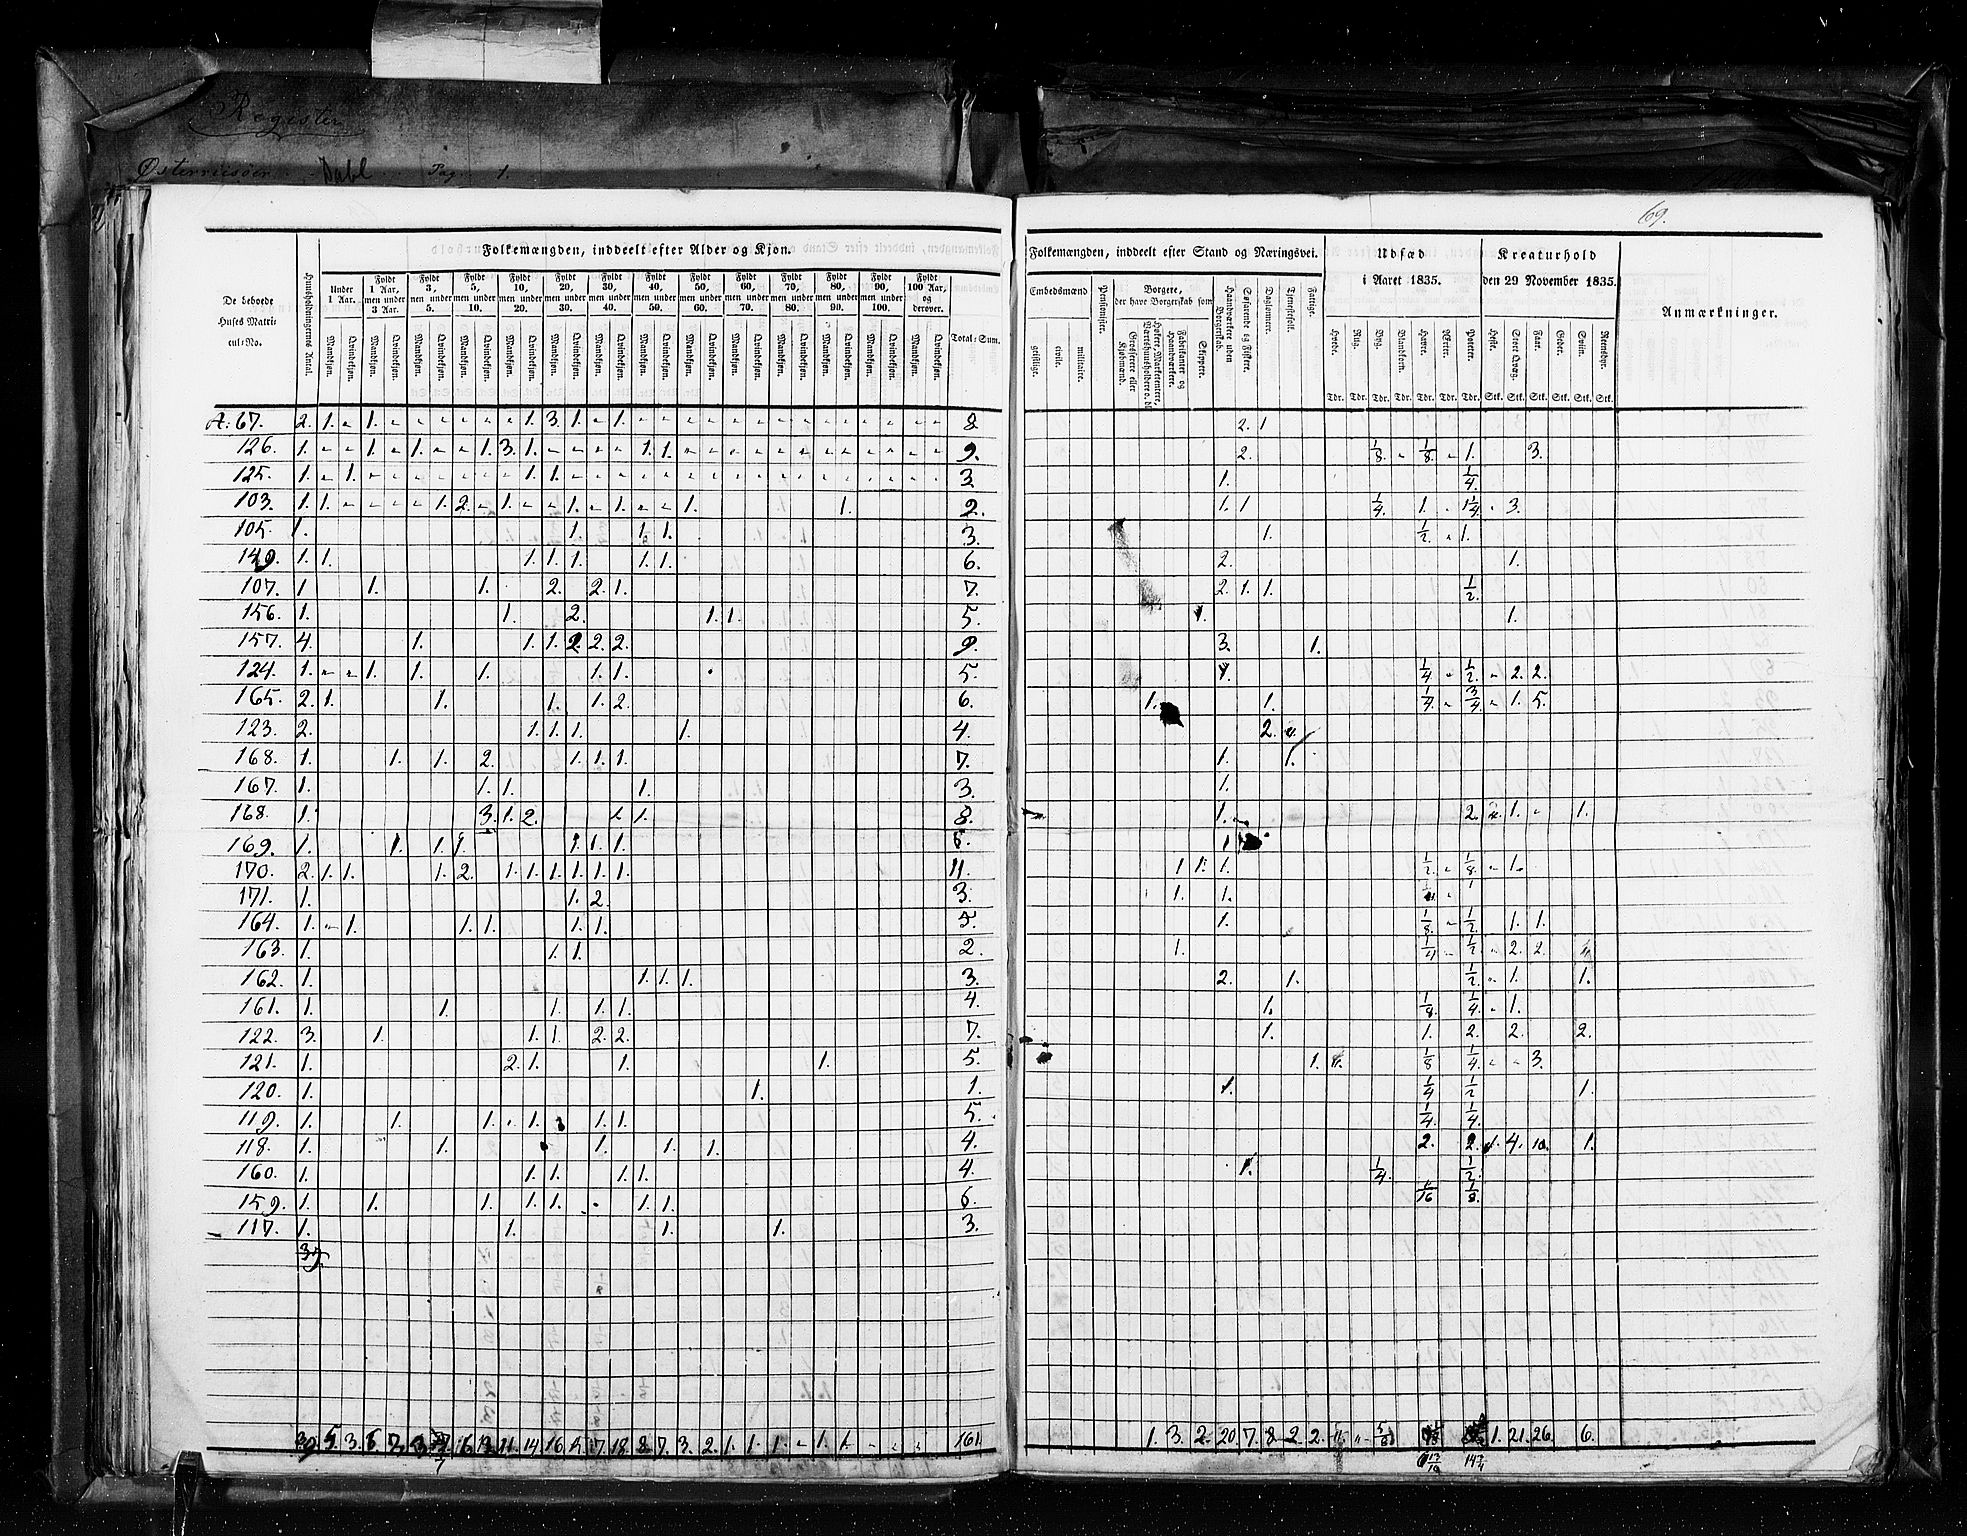 Register
Østerriisöer Dahl Pag. 1.
69.
Folkemængden, inddeelt efter Alder og Kjøn.
De beboede Huses Matricul-No.
Huusholdningernes Antal.
Under 1 Aar.
Fyldt 1 Aar, men under 3 Aar.
Fyldt 3, men under 5.
Fyldt 5, men under 10.
Fyldt 10, men under 20.
Fyldt 20, men under 30.
Fyldt 30, men under 40.
Fyldt 40, men under 50.
Fyldt 50, men under 60.
Fyldt 60, men under 70.
Fyldt 70, men under 80.
Fyldt 80, men under 90.
Fyldt 90, men under 100.
Fyldt 100 Aar, og derover.
Mandkjøn. Qvindekjøn.
Total-Sum.
Folkemængden, inddeelt efter Stand og Næringsvei.
Embedsmænd
geistlige. civile. militaire.
Pensionister.
Borgere, der have Borgerskab som
Grosserere eller Kjøbmænd.
Fabrikanter og Haandværkere.
Skippere.
Haandværkere uden Borgerskab.
Søfarende og Fiskere.
Daglønnere.
Tjenestefolk.
Fattige.
Udsæd i Aaret 1835.
Hvede. Rug. Byg. Blandkorn. Havre. Ærter. Poteter.
Tdr. Tdr. Tdr. Tdr. Tdr. Tdr. Tdr.
Kreaturhold den 29 November 1835.
Heste. Stort Qvæg. Faar. Geder. Sviin. Reensdyr.
Stk. Stk. Stk. Stk. Stk. Stk.
Anmærkninger.
A: 67. 2. 1. " 1. " " " " " " 1. 3. 1. " 1. 8 2. 1
126. 1. " " 1. " 1. " " 1. 3. 1. " " " " 1. 1. 9. 2. 1/8. " 1/8. " 1. 3.
125. 1. " 1. 1. 1. 3. 1. 1/4.
103. 1. 1. 1. 2. " 1. " " 1. " 1. " " 1. 1. 2. 1. 1 1/4. 1. " 1 1/4. " 3.
105. 1. 1. 1. 1. 3. 1. 1/2. " 1.
149. 1. 1. 1. 1. 1. 1. 1. 6. 2. 1.
107. 1 1. 1. 2. 2. 1. 7. 2. 1. 1. 1/2.
156. 1. 1. 2. 1. 1. 5. 1. 1.
157. 4. 1. 1. 1. 2. 2. 2. 9. 3. 1.
124. 1. " " 1. 1. 1. 1. 1. 5. 1. 1/4 " 1/2. " 2. 2.
165. 2. 1. 1. 1. 1. 2. 6. 1. 1. 1/4. " 3/4. " 1. 5.
123. 2. 1. 1. 1. 1. 4. 2.
168. 1. 1. 1. 2. 1. 1. 1. 7. 1. 1.
167. 1. 1. 1. 1. 3. 1.
168. 1. 3. 1. 2. 1. 1. 8. 1. 2. 1. " 1.
169. 1. 1. 1. 1. 1. 1. 1. 6. 1
170. 2. 1. 1. 1. 2. 1. 1. 1. 1. 1. 1. 11. 1 1. 1. 1/2. " 1/8. " 1.
171. 1. 1. 2. 3. 1. 1.
164. 1. " 1. 1. 1. 1. 1. 5. 1. 1/8. " 1/2. 1. 1.
163. 1. 1. 1. 2. 1. 1/4 " 1/2. " 2. 2.
162. 1. 1. 1. 1. 3. 2. 1. 1/2. " 1. 1.
161. 1. 1. 1. 1. 1. 4. 1. 1/8. 1/4. " 1.
122. 3. 1. 1. 1. 2. 2. 7. 1. 1. 2. 2. 2.
121. 1. 2. 1. 1. 1. 5. 1. 1/8 1/4. " " 3.
120. 1. 1. 1. 1. 1/4 1/2 1.
119. 1. 1. 1. 1. 1. 1. 5. 1/4. 1/4.
118. 1. 1. 1. 1. 1. 4. 2. 2. 4. 10. 1.
160. 1. 1. 1. 1. 1. 4. 1. 1/4. 1/2.
159. 1. 1. 1. 1. 1. 1. 1. 6. 1/16 1/8.
117. 1. 1. 1. 1. 3.
39.
39 5. 3. 11. 14. 16. 18. 8. 7. 3. 2. 1. 1. 1. " 1. 1. 161. 1. 3. 2. 20. 7. 8. 2. 2. 5/8 1. 21. 26. 6.